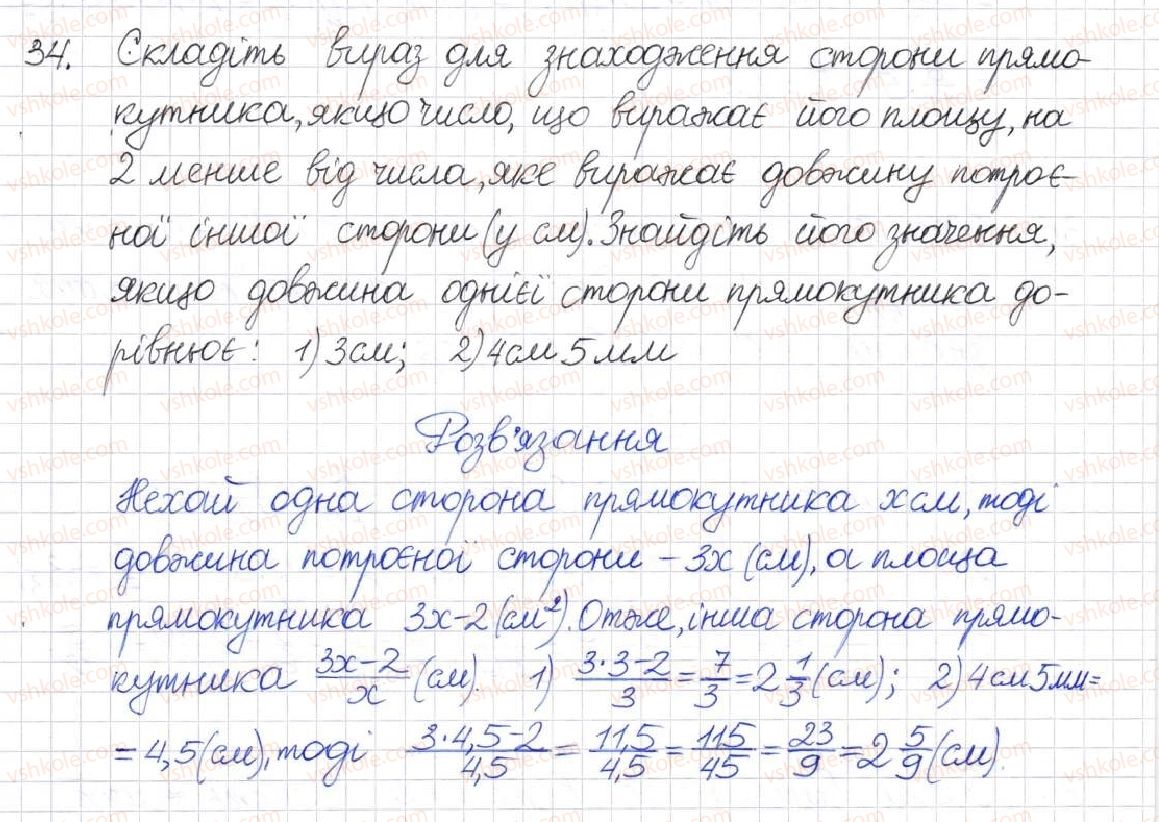 34. Складіть вираз для знаходження сторони прямо-
кутника, якщо число, що виражає його площу, на
2 менше від числа, яке виражає довжину потроє-
ної іншої сторони (у см). Знайдіть його значення,
якщо довжина однієї сторони прямокутника до-
рівнює: 1) 3 см; 2) 4 см 5 мм
Розв'язання
Нехай одна сторона прямокутника x см, тоді
довжина потроєної сторони – 3x (см), а площа
прямокутника 3x-2 (см²). Отже, інша сторона прямо-
кутника (3x-2)/x (см). 1) (3·3-2)/3 = 7/3 = 2 1/3 (см); 2) 4 см 5 мм =
= 4,5 (см), тоді (3·4,5-2)/4,5 = 11,5/4,5 = 115/45 = 23/9 = 2 5/9 (см).